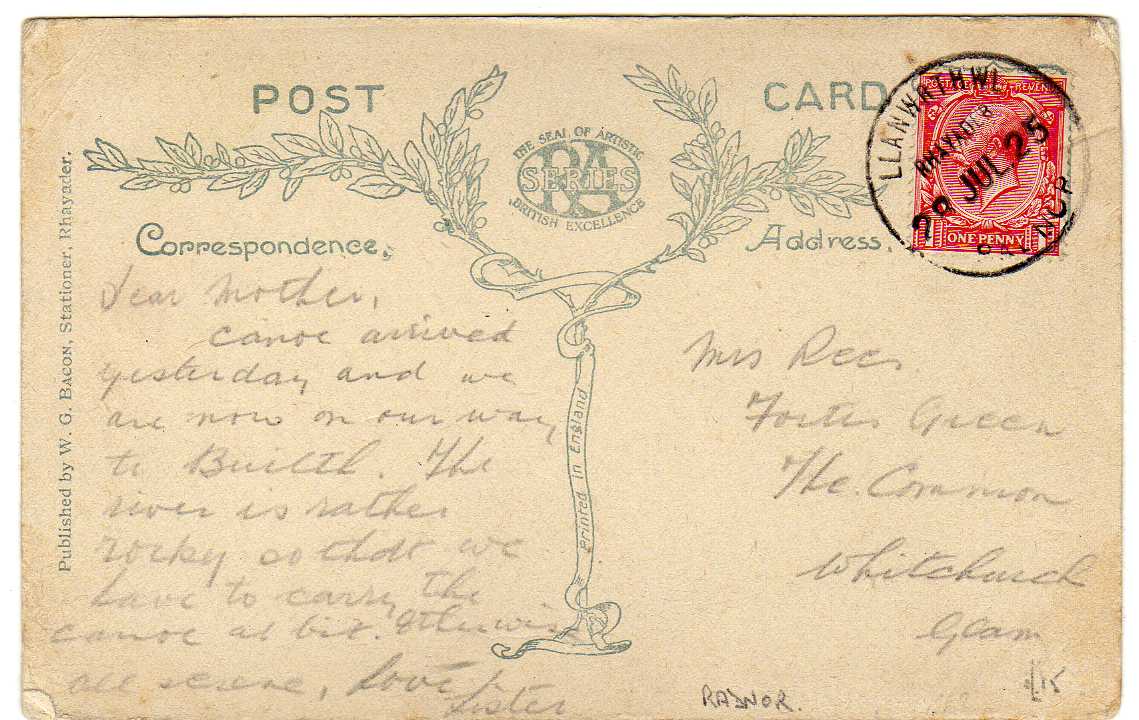 POST CARD
THE SEAL OF ARTISTIC
RA
SERIES
BRITISH EXCELLENCE
Correspondence.
Address.
POSTAGE REVENUE
ONE PENNY
LLANWRTHWL
RHAYADER
JUL 25
Published by W. G. Bacon, Stationer, Rhayader.
Printed in England
Dear Mother,
canoe arrived
yesterday and we
are now on our way
to Builth. The
river is rather
rocky so that we
have to carry the
canoe a bit. Otherwise
all serene, Love
Mrs Rees.
Green
The Common
Whitchurch
Glam
RADNOR.